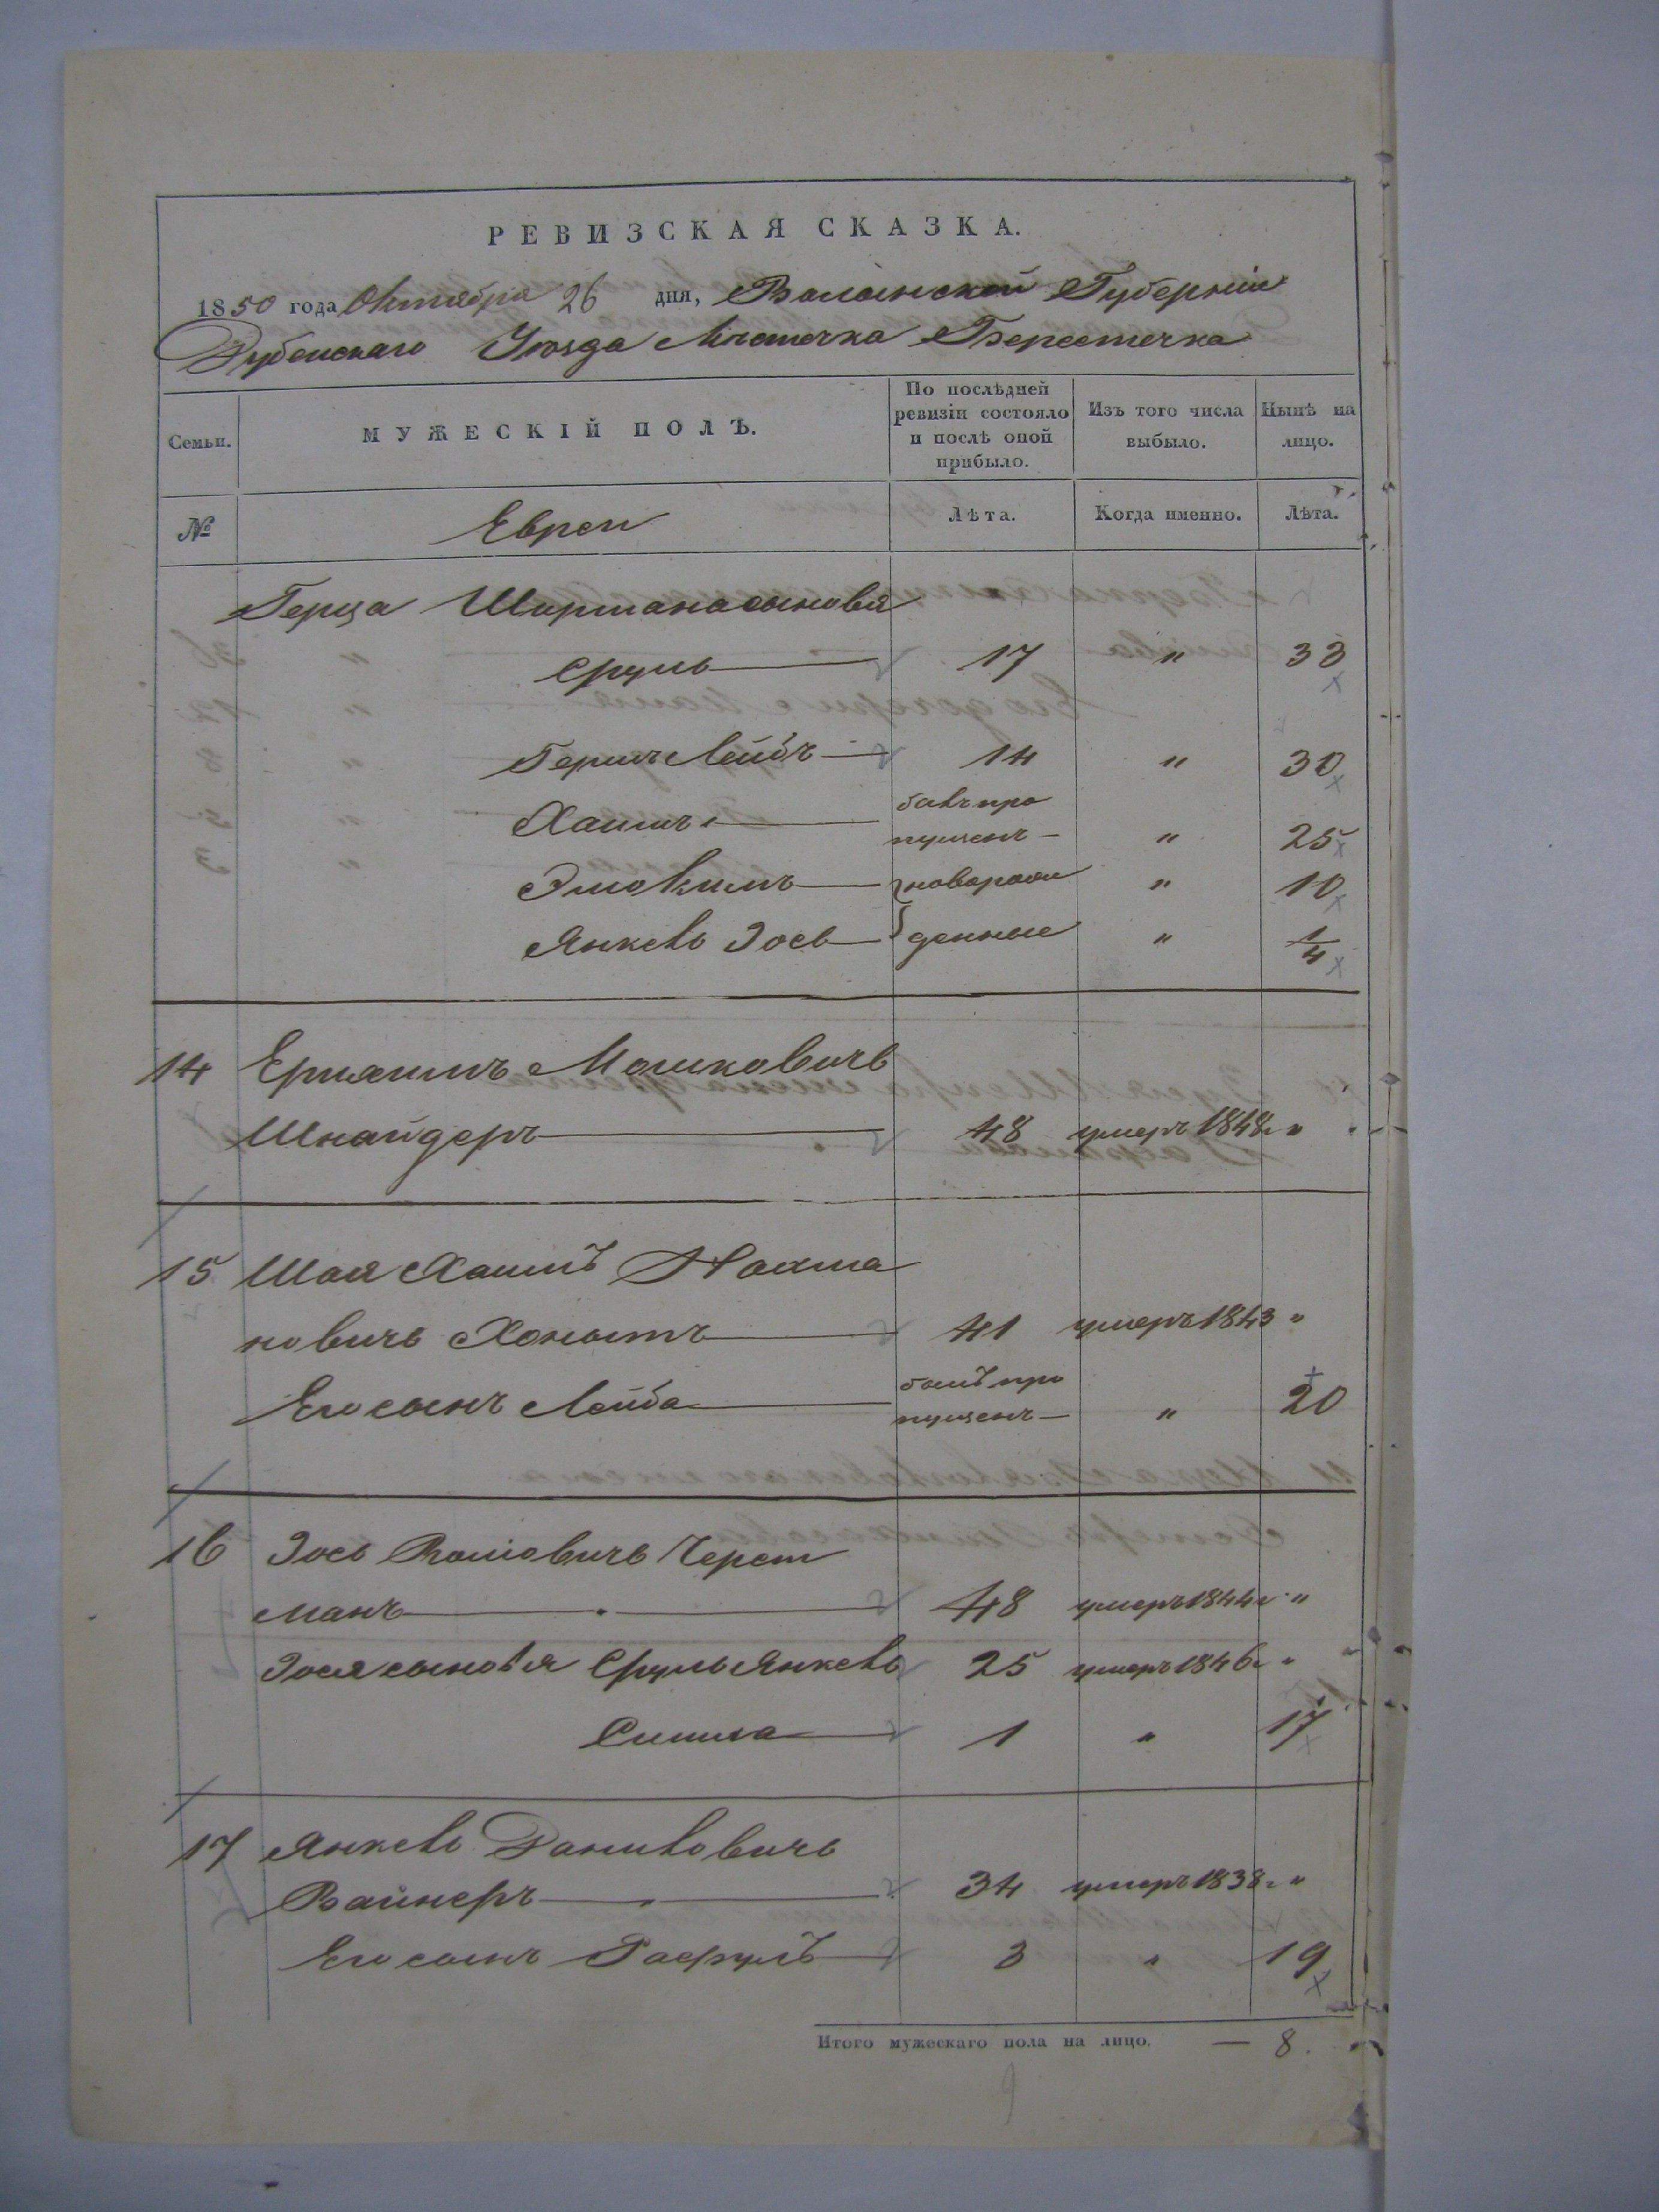 РЕВИЗСКАЯ СКАЗКА.
1850 года Октября 26 дня, Волынской Губерніи
Дубенскаго Уезда Местечка Берестечка
Семьи. МУЖЕСКІЙ ПОЛЪ. По послѣдней ревизіи состояло и послѣ оной прибыло. Изъ того числа выбыло. Нынѣ на лицо.
№ Евреи Лѣта. Когда именно. Лѣта.
Герца сыновья
Сруль 17 " 33
Гершъ Лейбъ 14 " 30
Хаимъ былъ про
пущенъ " 25
новорож 10
Янкель Іось денные " 1/4
14 Мошковичь
Шнайдеръ 48 умеръ 1848 г "
15 Шая Хаимъ Нахма
новичь 41 умеръ 1843 "
Его сынъ Лейба былъ про
пущенъ " 20
16 Іось Черет
манъ 48 умеръ 1844 г "
Іося сыновья Сруль Янкель 25 умеръ 1846 г "
Симха 1 " 17
17 Янкель
Вайнеръ 34 умеръ 1838 г "
Его сынъ 3 " 19
Итого мужескаго пола на лицо. — 8.
9